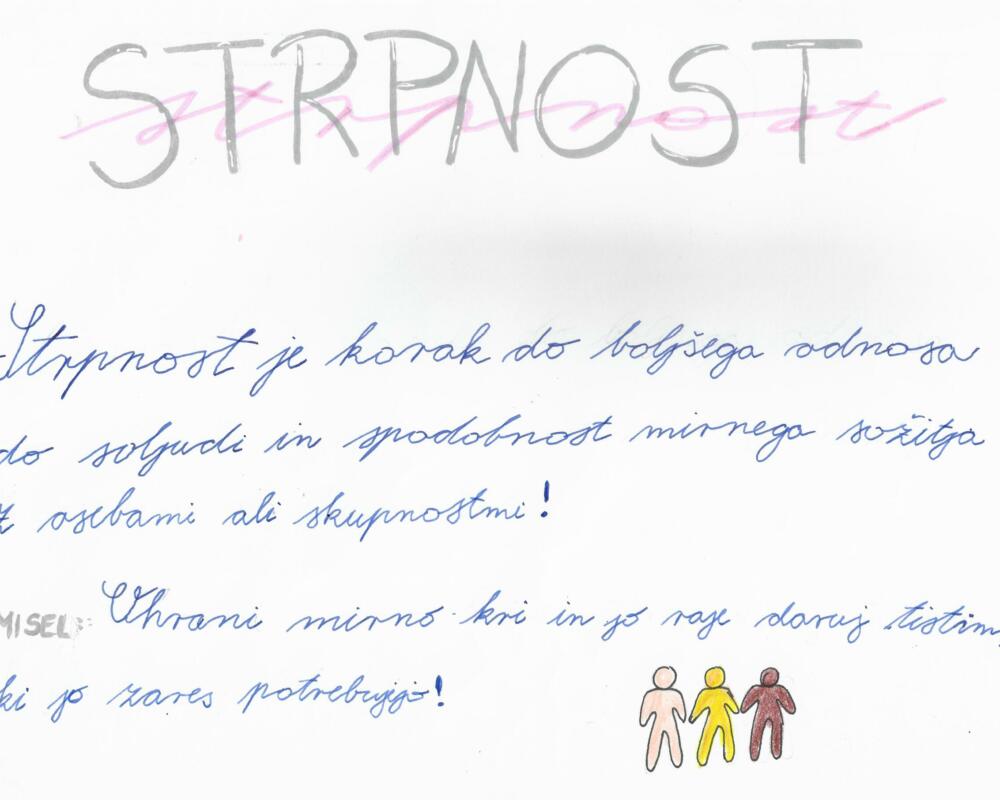 STRPNOST
strpnost
Strpnost je korak do boljšega odnosa
do soljudi in spodobnost mirnega sožitja
z osebami ali skupnostmi!
MISEL: Uhrani mirno kri in jo raje daruj tistim,
ki jo zares potrebujejo!